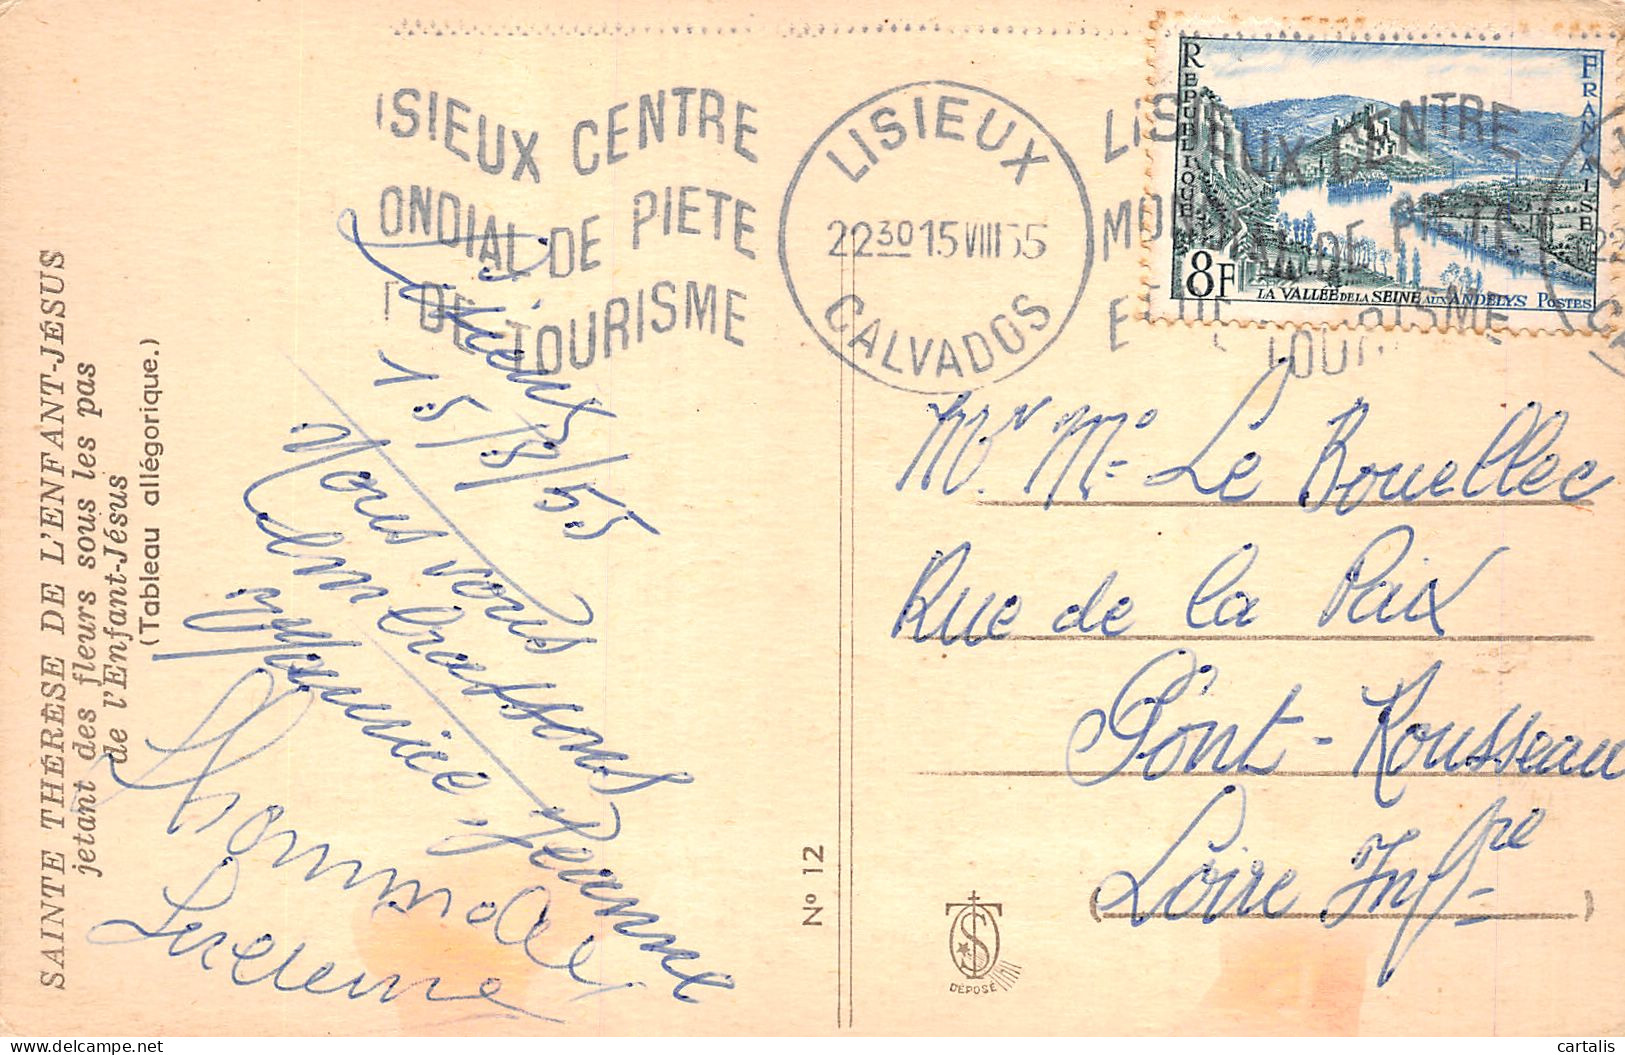 SAINTE THÉRÈSE DE L'ENFANT-JÉSUS
jetant des fleurs sous les pas
de l'Enfant-Jésus
(Tableau allégorique.)
ISIEUX CENTRE
ONDIAL DE PIETE
T DE TOURISME
LISIEUX
22 30 15 VIII 55
CALVADOS
LISIEUX CENTRE
MONDIAL DE PIETE
ET DE TOURISME
REPUBLIQUE FRANÇAISE
8F
LA VALLÉE DE LA SEINE AUX ANDELYS POSTES
Lisieux
15/8/55
Nous vous
embrassons
Maurice, Jeanne
N° 12
Mr Me Le Rouellec
Rue de la Paix
Pont-Rousseau
(Loire Infre)
DÉPOSÉ
cartalis
www.delcampe.net